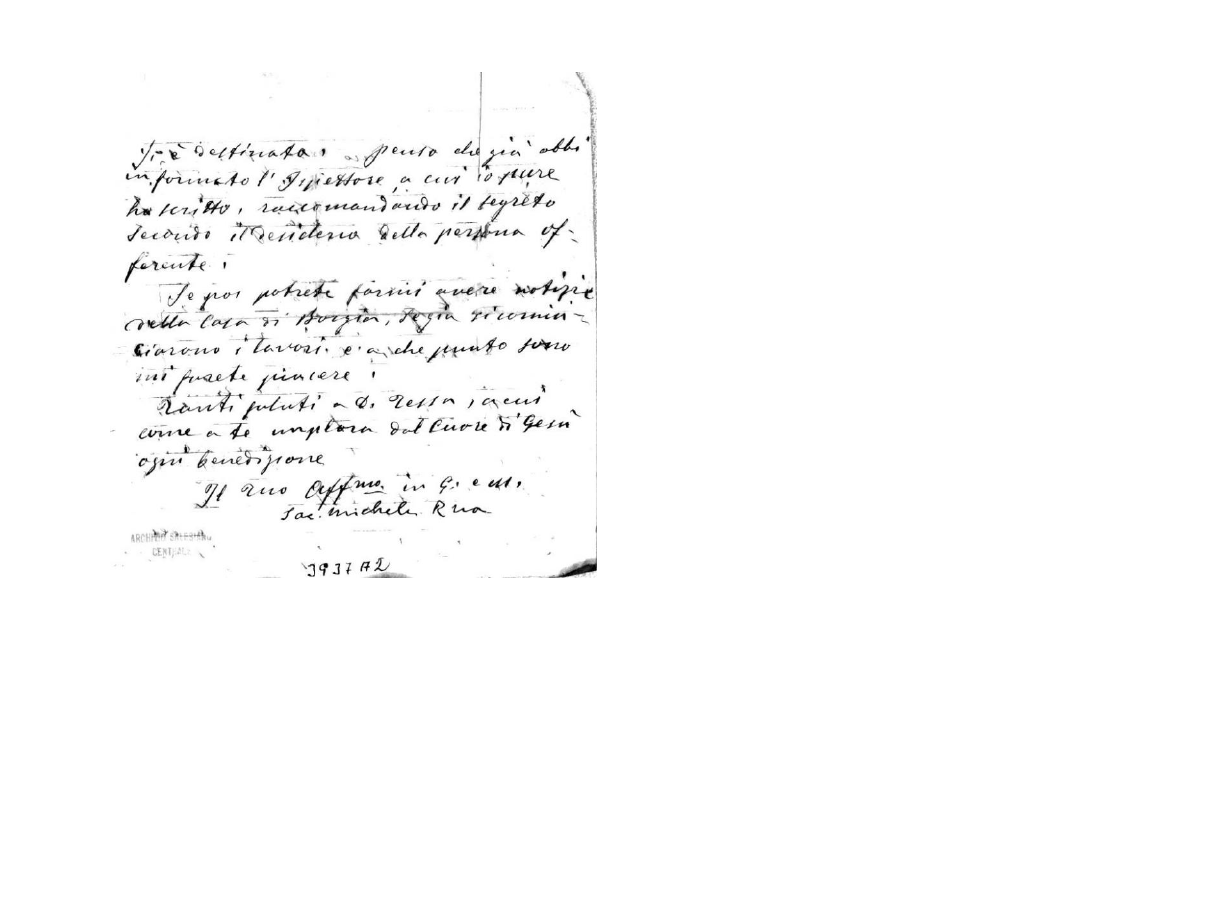 è destinata. penso che già abbi
informato l'Ispettore, a cui io pure
ho scritto, raccomandando il segreto
secondo il desiderio della persona of-
ferente.
Se poi potrete farmi avere notizie
della Casa di Borgia, se già ricomin-
ciarono i lavori e a che punto sono
mi farete piacere.
Tanti saluti a D. Tessa, a cui
come a te imploro dal Cuore di Gesù
ogni benedizione
Il tuo Affmo. in G. e M.
Sac. Michele Rua
ARCHIVIO SALESIANO
CENTRALE
3937 A2